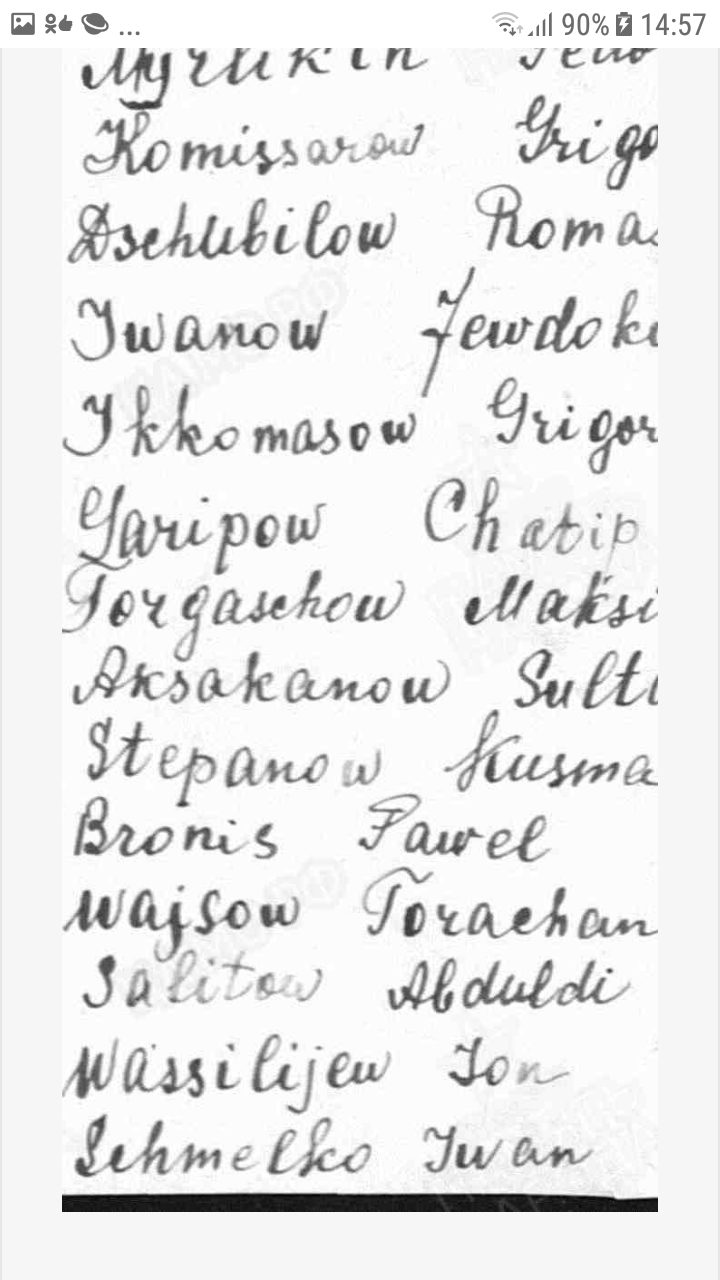 ... 90% 14:57
Komissarow Grigo
Dschubilow Roma
Iwanow Jewdoki
Ikkomasow Grigor
Garipow Chatip
Torgaschow Maksi
Aksakanow Sult
Stepanow Kusma
Bronis Pawel
Wajsow Torachan
Salitow Abduldi
Wassilijew Ion
Schmelko Iwan